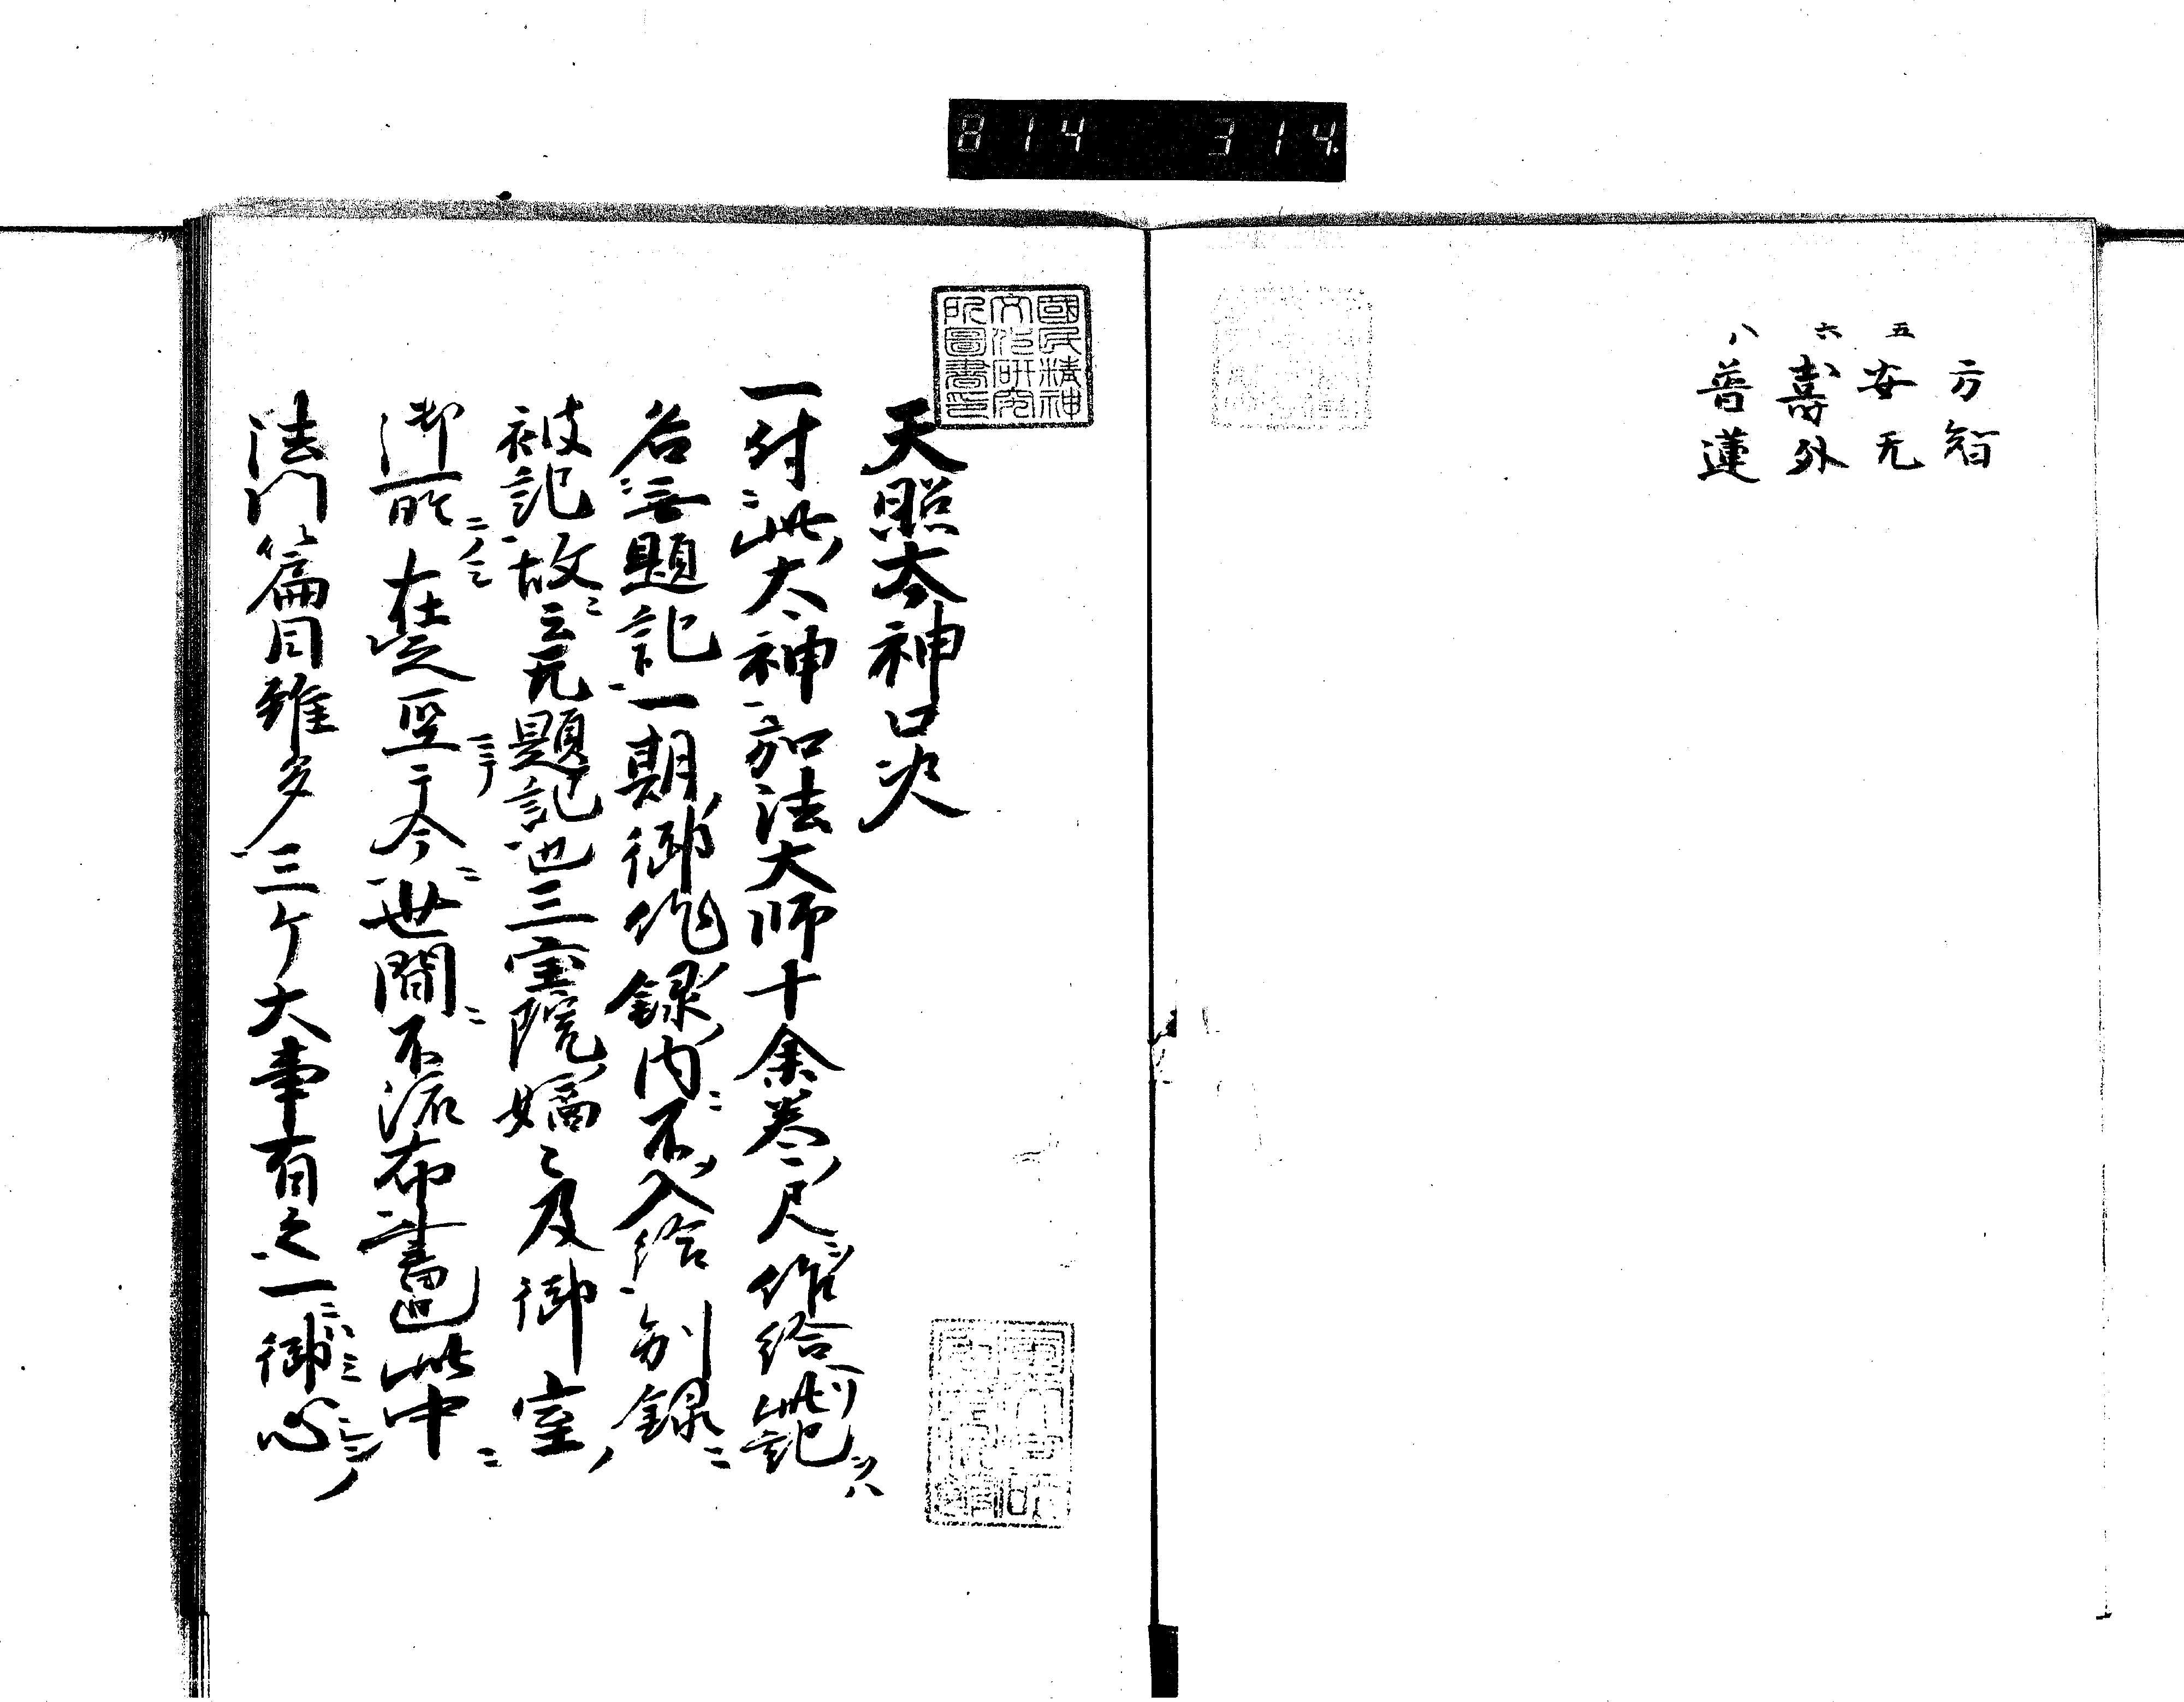 814 314.
方智
五 安无
六 壽外
八 普蓮
國民精神
文化研究
所圖書印
天照太神口决
一付ニ此ノ大神ニ加法大师十余巻ノ尺ヲ作給ヘリ此記ヲハ
名ニ無題記ト一期ノ御作ノ録ノ内ニ不入給別録ニ
被記故ニ云无題記也三宝院ノ嫡々及御室ノ
御所ニ在之至テ今ニ世間ニ不流布書也此中ニ
法門篇目雖多三ケ大事有之一ニハ御心